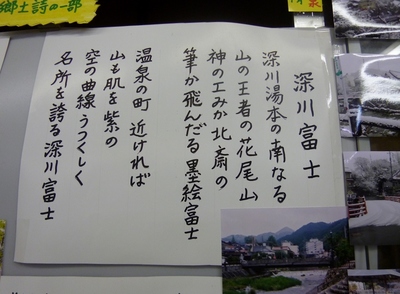 郷土詩の一部
深川富士
深川湯本の南なる
山の王者の花尾山
神の工みか北斎の
筆か飛んだる墨絵富士
温泉の町近ければ
山も肌を紫の
空の曲線うつくしく
名所を誇る深川富士